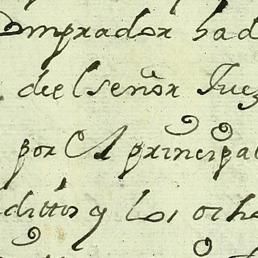 Comprador had
del señor Juez
por El principal
dittos y los ocho